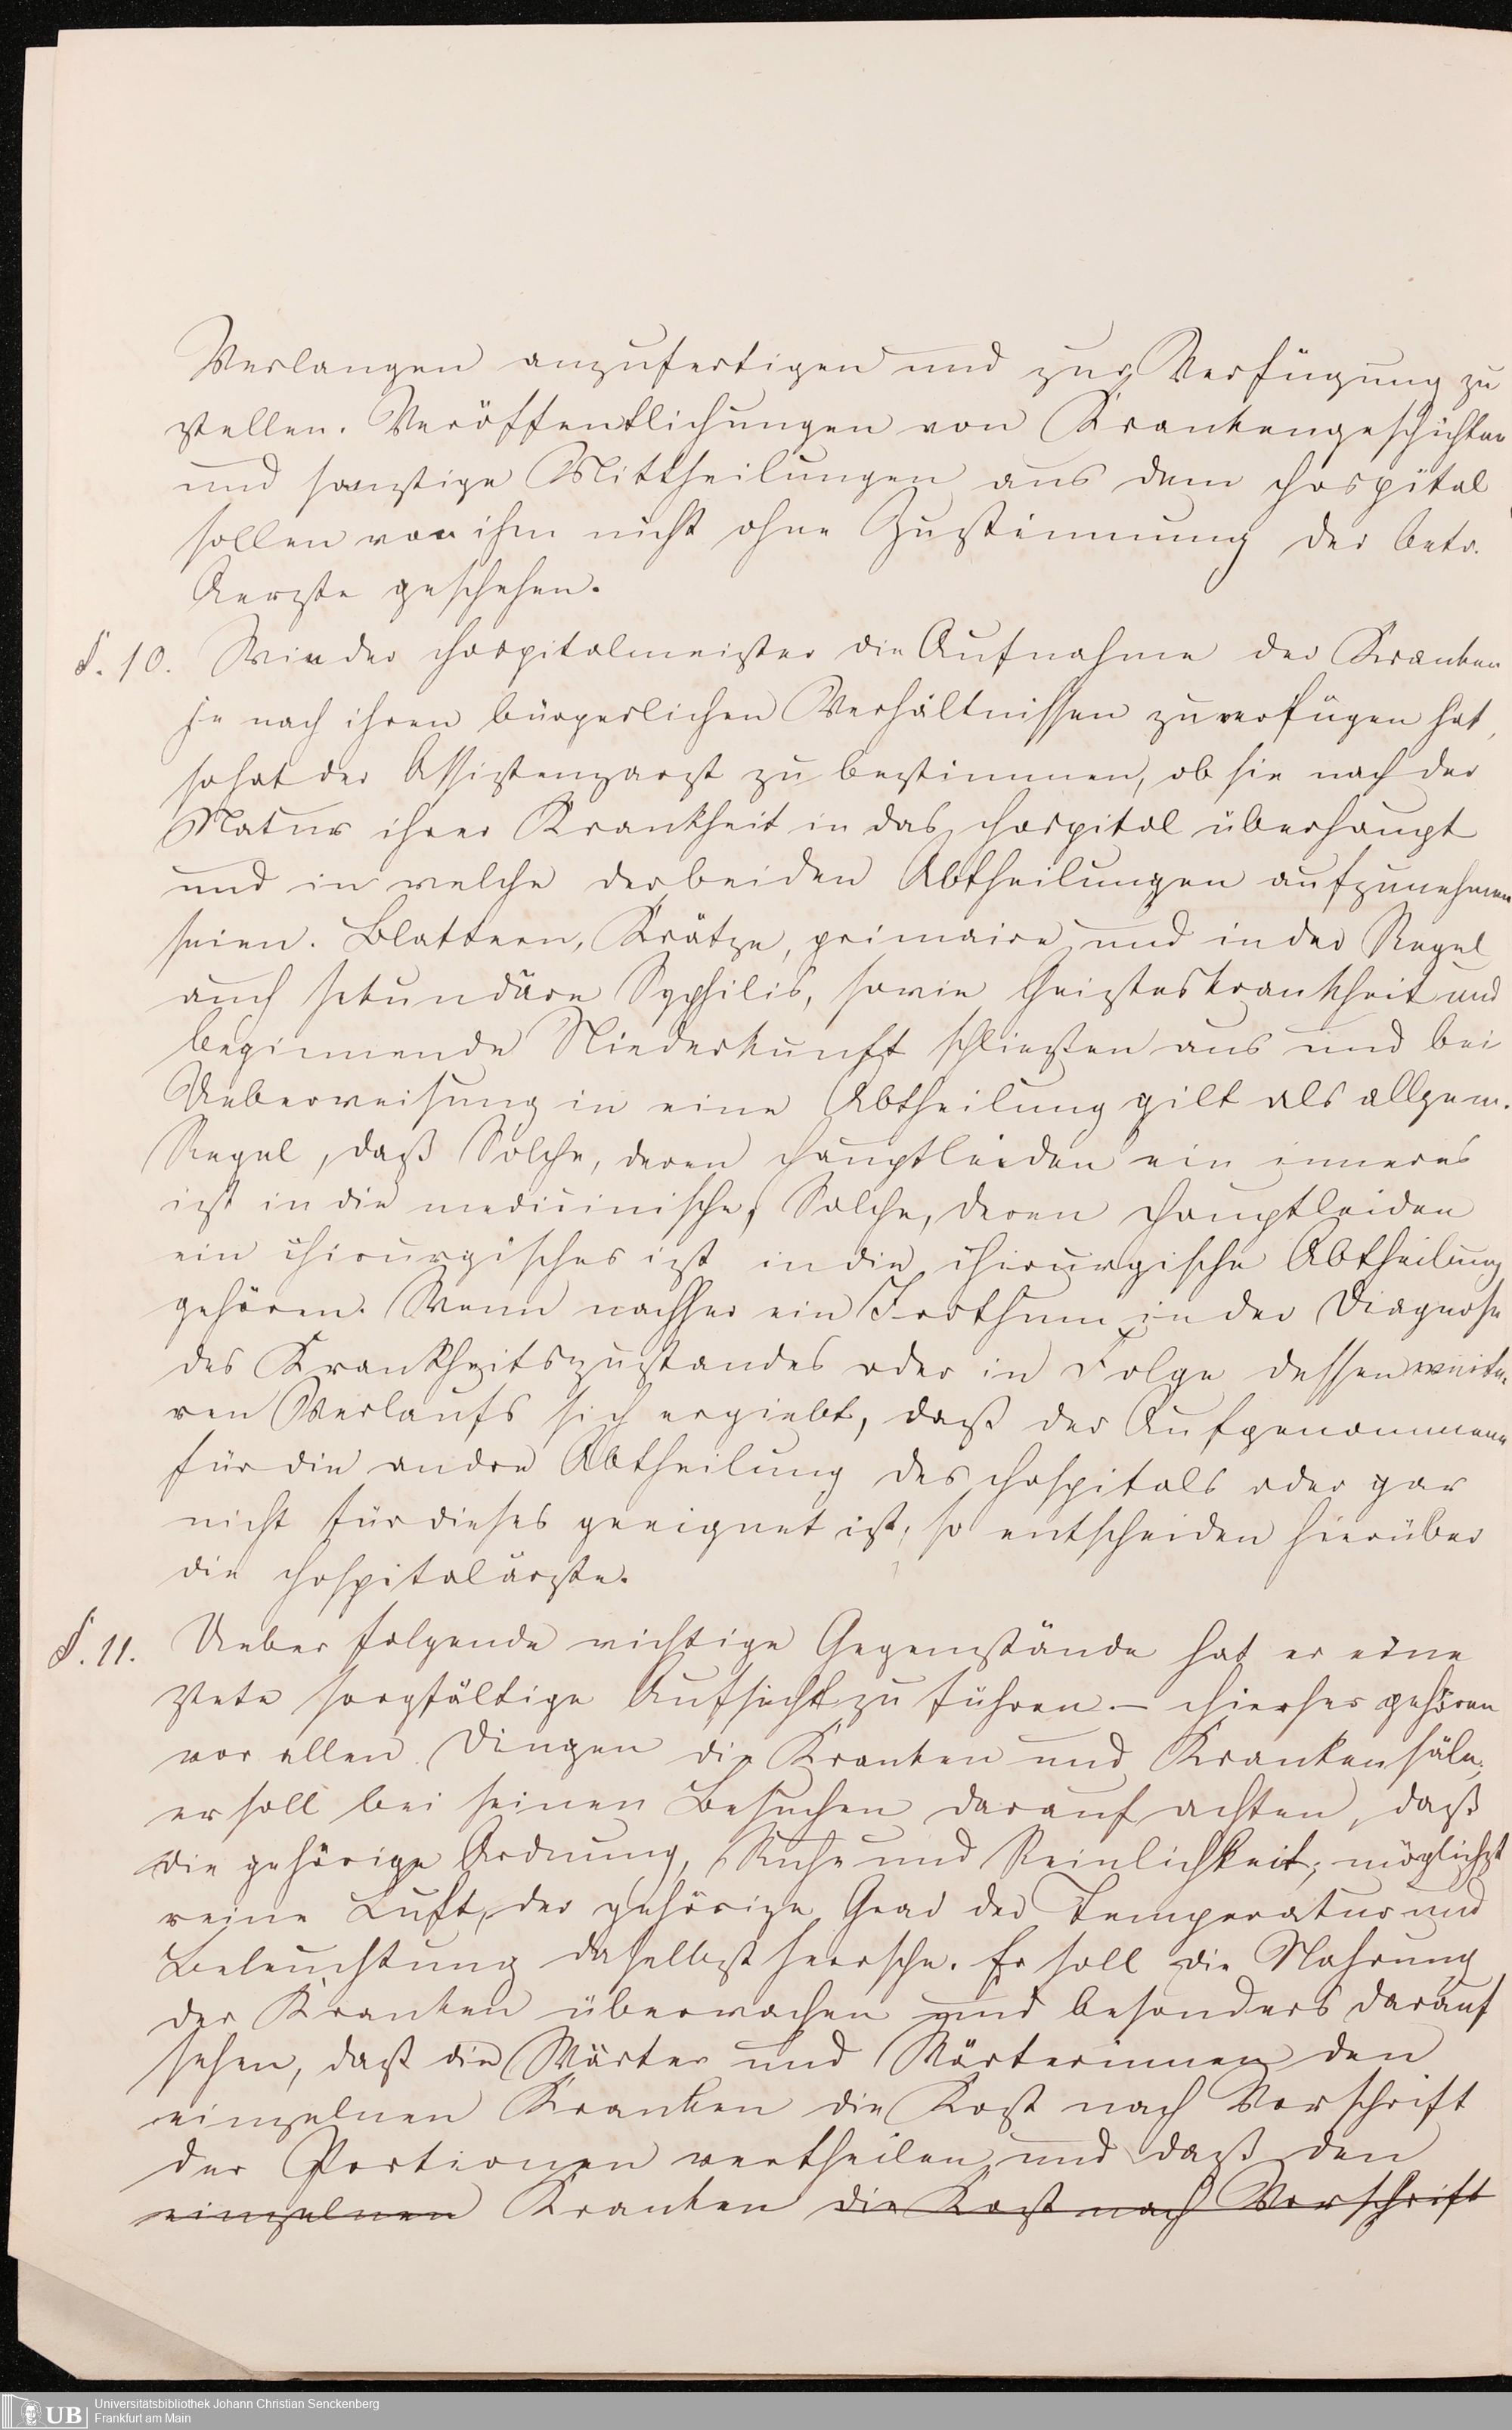 Verlangen anzufertigen und zur Verfügung zu
stellen. Veröffentlichungen von Krankengeschichten
und sonstige Mittheilungen aus dem Hospital
sollen von ihm nicht ohne Zustimmung der betr.
Aerzte geschehen.
§. 10. Wie der Hospitalmeister die Aufnahme der Kranken
je nach ihren bürgerlichen Verhältnissen zu verfügen hat,
so hat der Assistenzarzt zu bestimmen, ob sie nach der
Natur ihrer Krankheit in das Hospital überhaupt
und in welche der beiden Abtheilungen aufzunehmen
seien. Blattern, Krätze, primaire und in der Regel
auch sekundäre Syphilis, sowie Geisteskrankheit und
beginnende Niederkunft schließen aus und bei
Ueberweisung in eine Abtheilung gilt als allgem.
Regel, daß Solche, deren Hauptleiden ein inneres
ist in die medicinische, Solche, deren Hauptleiden
ein chirurgisches ist in die chirurgische Abtheilung
gehören. Wenn nachher ein Irrthum in der Diagnose
des Krankheitszustandes oder in Folge dessen weite-
ren Verlaufs sich ergiebt, daß der Aufgenommene
für die andre Abtheilung des Hospitals oder gar
nicht für dieses geeignet ist, so entscheiden hierüber
die Hospitalärzte.
§. 11. Ueber folgende wichtige Gegenstände hat er eine
stete sorgfältige Aufsicht zu führen. — Hierher gehören
vor allen Dingen die Kranken und Krankensäle;
er soll bei seinen Besuchen darauf achten, daß
die gehörige Ordnung, Ruhe und Reinlichkeit, möglichst
reine Luft, der gehörige Grad der Temperatur und
Beleuchtung daselbst herrsche. Er soll die Nahrung
der Kranken überwachen und besonders darauf
sehen, daß die Wärter und Wärterinnen den
einzelnen Kranken die Kost nach Vorschrift
der Portionen vertheilen und daß den
einzelnen Kranken die Kost nach Vorschrift
UB Universitätsbibliothek Johann Christian Senckenberg
Frankfurt am Main